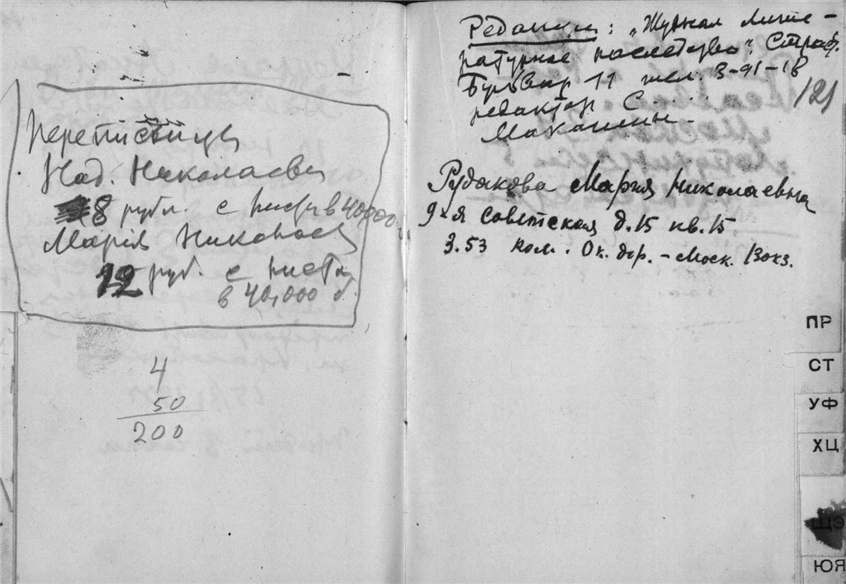 Переписчицы
Над. Николаевн
8 рубл. с листа в 40,000 б.
Марія Николаев
12 руб. с листа
в 40,000 б.
4
50
200
Редакция: "Журнал Лите-
ратурное наследство". Страс.
Бульвар 11 тел. 3-91-18
редактор С.
Макашин.
121
Рудакова Мария Николаевна
9-я Советская д. 15 кв. 15.
3.53 Ок. дор. - Моск. Вокз.
ПР
СТ
УФ
ХЦ
ЩЭ
ЮЯ